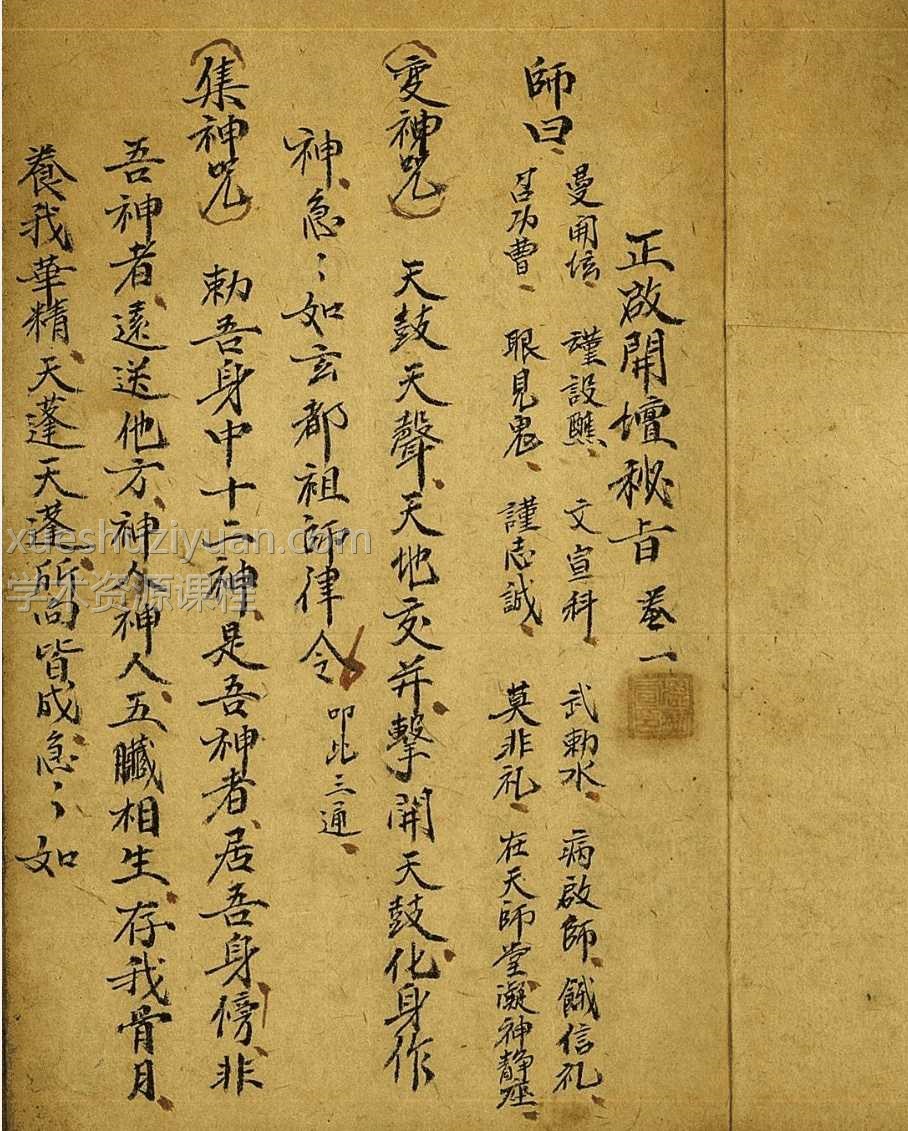 正啟開壇秘旨 卷一
師曰、
曼用信、謹設醮、文宣科、武勅水、病啟師、餓信礼、
召功曹、眼見鬼、謹志誠、莫非礼、在天師堂凝神静座、
(变神咒) 天鼓天聲、天地交并擊開天鼓化身作
神、急〻如玄都祖師律令 叩比三通、
(集神咒) 勅吾身中十二神、是吾神者、居吾身傍、非
吾神者、遠送他方、神人神人、五臟相生、存我骨月、
養我華精、天蓬天蓬、所向皆成、急〻如
xueshuziyuan.com
学术资源课程